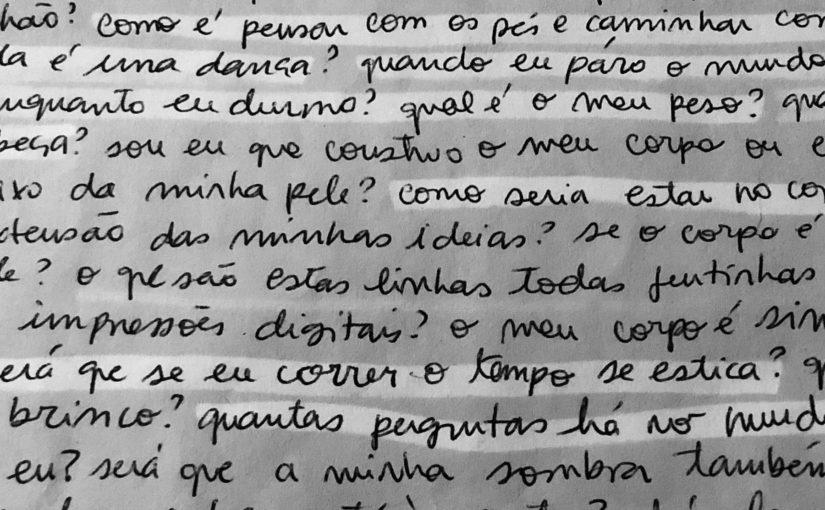 hão? como é pensar com os pés e caminhar com
la é uma dança? quando eu páro o mundo
nquanto eu durmo? qual é o meu peso? qua
beça? sou eu que construo o meu corpo ou e
ixo da minha pele? como seria estar no co
tensão das minhas ideias? se o corpo é
le? o que são estas linhas todas juntinhas
impressões digitais? o meu corpo é sin
erá que se eu correr o tempo se estica? q
brinco? quantas perguntas há no mund
eu? será que a minha sombra também